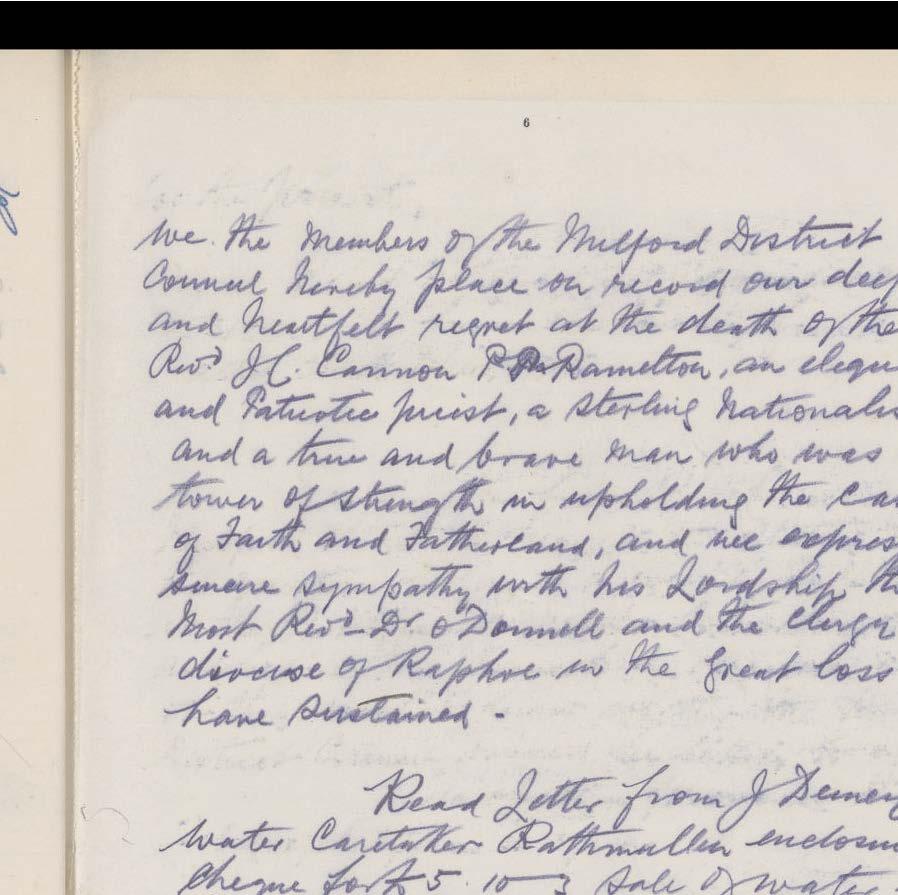 6
We. the Members of the Milford District
Council hereby place on record our deep
and heartfelt regret at the death of the
Revd J C. Cannon P.P. Ramelton, an eloqu
and Patriotic priest, a sterling Nationalis
and a true and brave man who was
tower of strength in upholding the cau
of Faith and Fatherland, and we expres
sincere sympathy with his Lordship th
Most Revd Dr O'Donnell and the Clergy
diocese of Raphoe in the great loss
have sustained -
Read Letter from J
Water Caretaker Rathmullen enclosin
Cheque for £5. 10 - 3 sale of wate